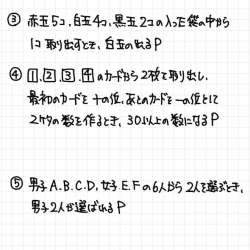 ③ 赤玉5コ、白玉4コ、黒玉2コの入った袋の中から
1コ取り出すとき、白玉の出るP
④ 1,2,3,4のカードから2枚取り出し、
最初のカードを十の位、あとのカードを一の位として
2ケタの数を作るとき、30以上の数になるP
⑤ 男子A.B.C.D,女子E.Fの6人から2人を選ぶとき、
男子2人が選ばれるP